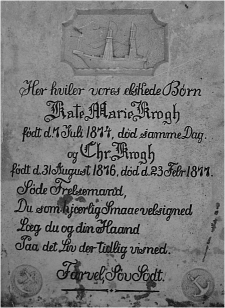 Her hviler vores elskede Børn
Kate Marie Krogh
født d. 1 Juli 1874, død samme Dag.
og
Chr Krogh
født d. 31 August 1876, død d. 23 Febr 1877.
Søde Frelsemand,
Du som kjærlig Smaae velsigned
Læg du og din Haand
Paa det Løv der tidlig visned.
Farvel, Sov Sødt.